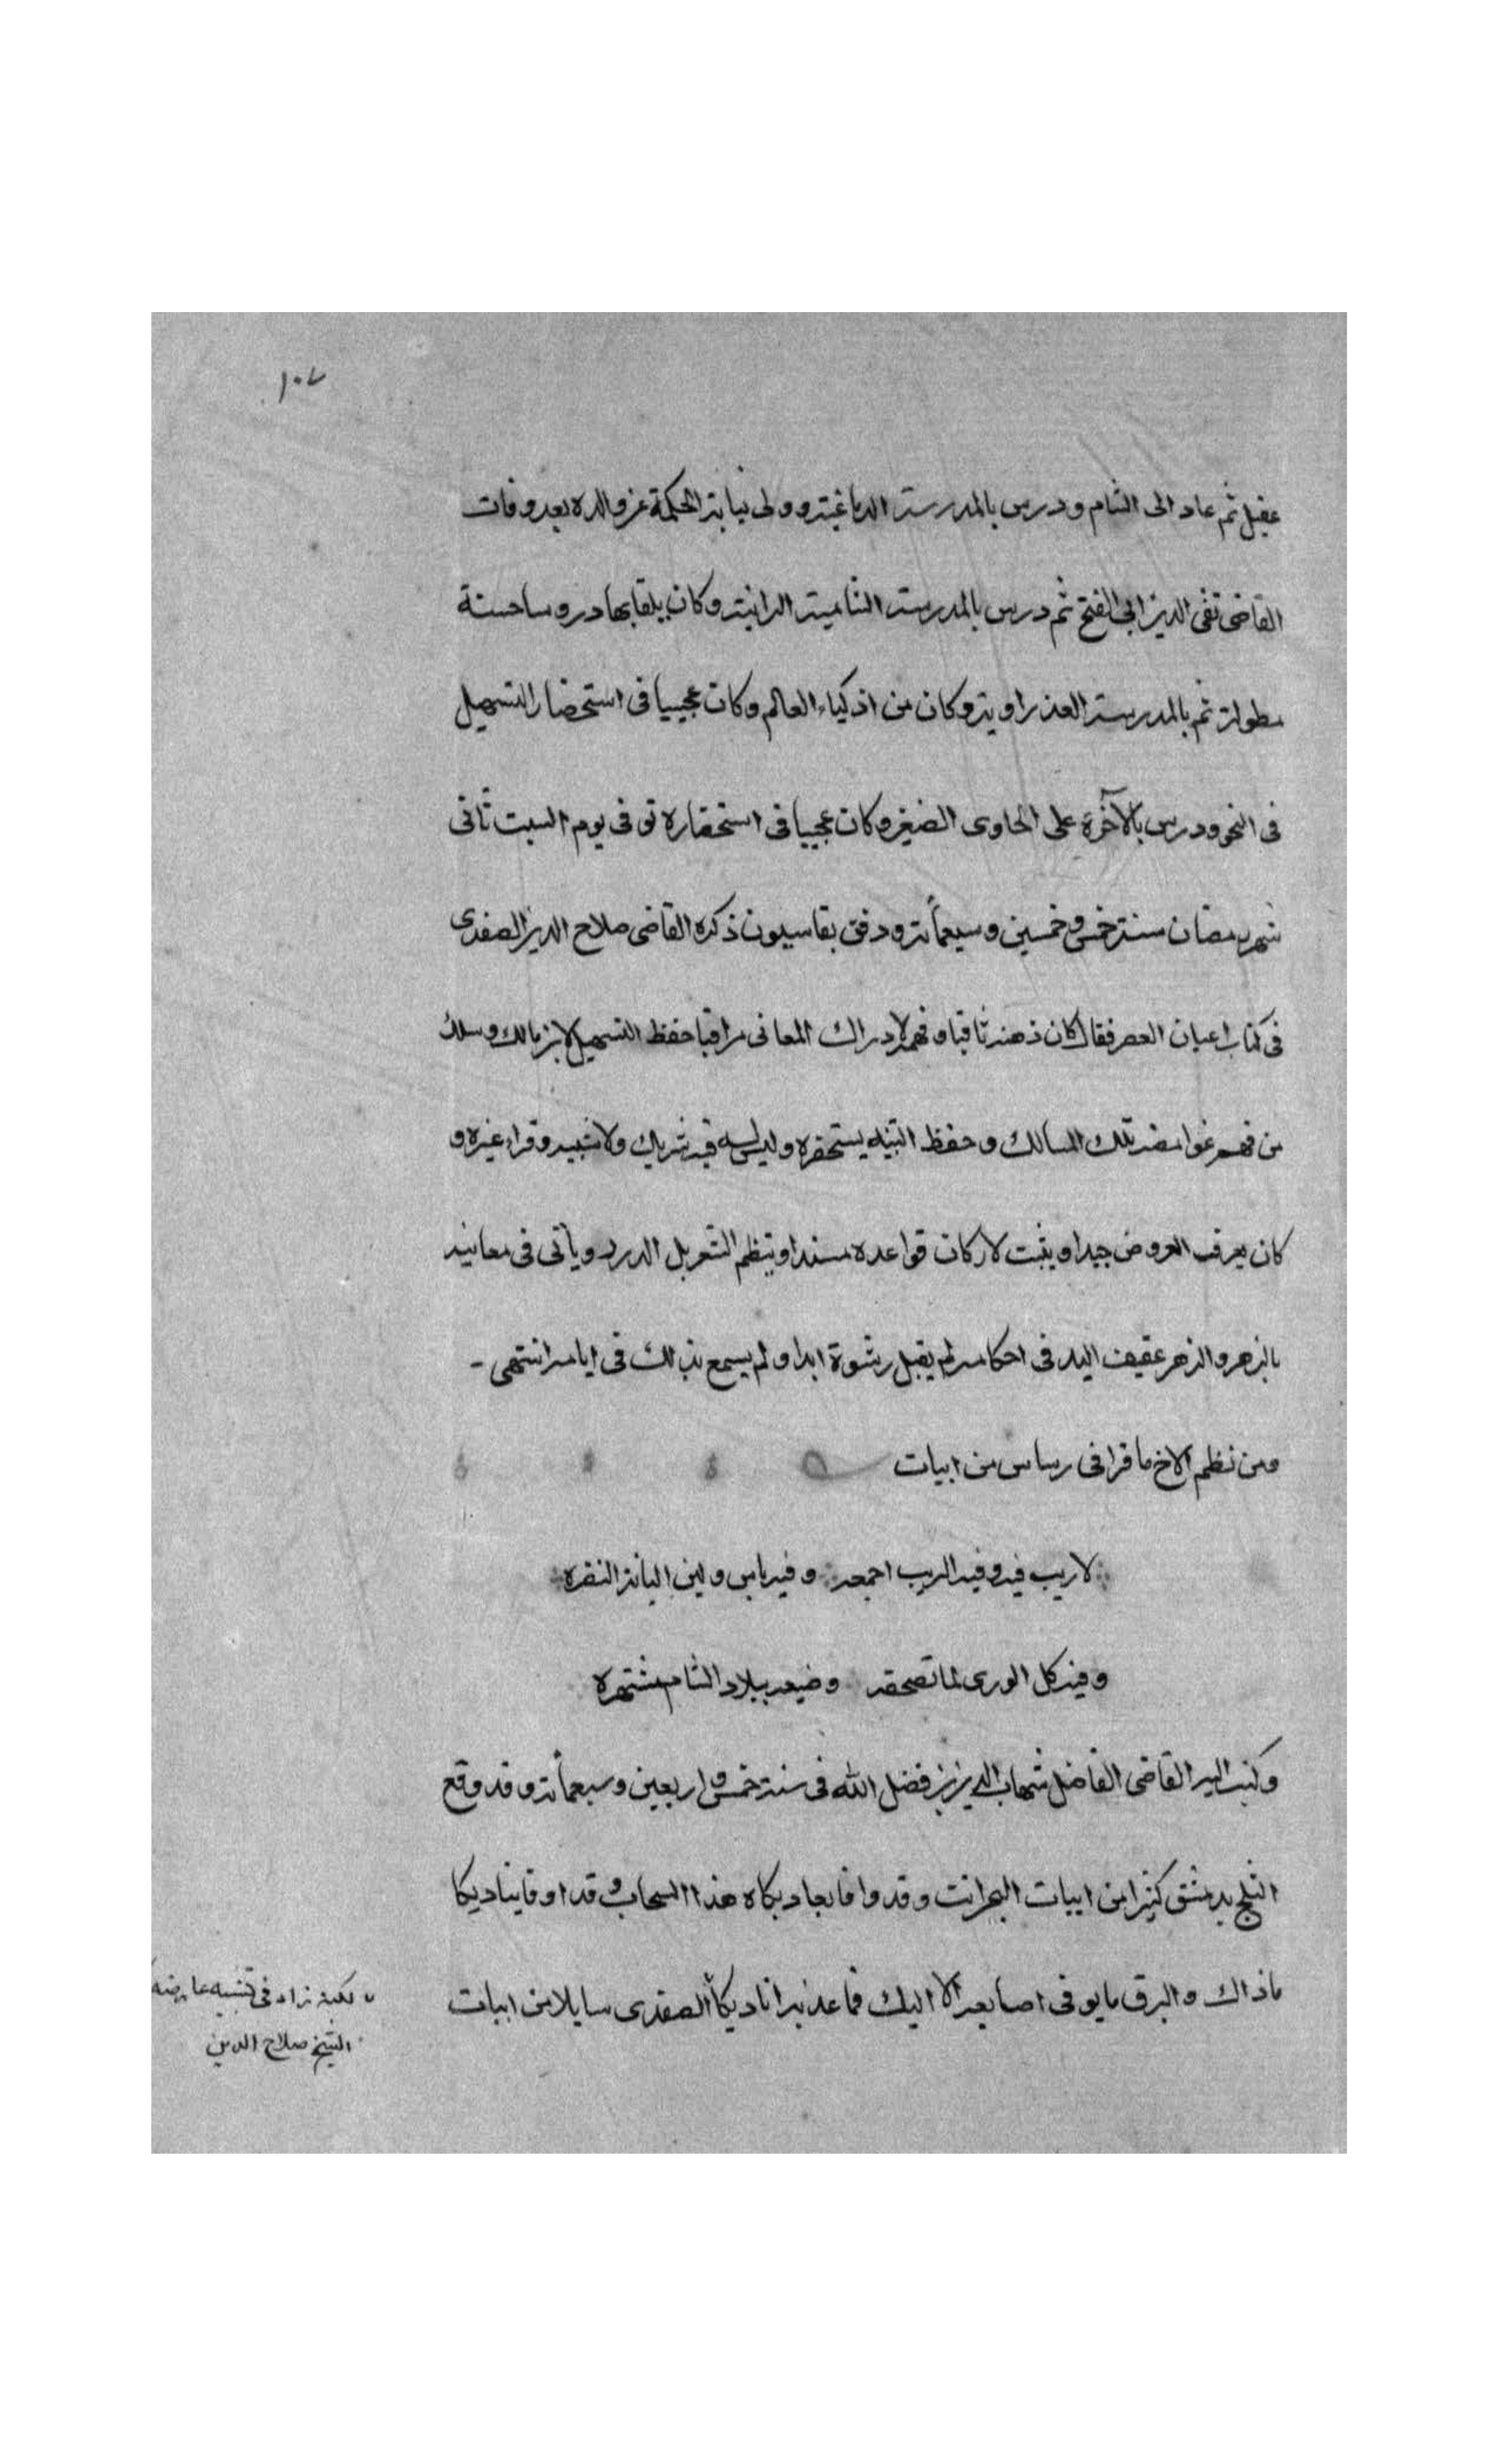 ١٠٧
عقيل ثم عاد الى الشام ودرس بالمدرسة الدماغية وولى نيابة الحكمة عن والده بعد وفات
القاضى تقى الدين ابى الفتح ثم درس بالمدرسة الشامية البرانية وكان يلقا بها دروسا حسنة
مطولة ثم بالمدرسة العذراوية وكان من اذكياء العالم وكان عجيبا فى استحضار التسهيل
فى النحو ودرس بالآخرة على الحاوى الصغير وكان عجيبا فى استحضاره توفى يوم السبت ثانى
شهر رمضان سنة خمس وخمسين وسبعمأته ودفن بقاسيون ذكره القاضى صلاح الدين الصفدى
فى كتاب اعيان العصر فقال كان ذهنه ثاقبا وفهمه لادراك المعانى مراقبا حفظ التسهيل لابن مالك وسلك
من فهم غوامضه تلك المسالك وحفظ التنبيه يستحضره وليس له فيه شريك ولا شبيه وقراء غيره و
كان يعرف العروض جيدا ويثبت لاركان قواعده مسندا وينظم الشعر بل الدرر ويأتى فى معانيه
بالزهر والزهر عفيف اليد فى احكامه لم يقبل رشوة ابدا ولم يسمع بذلك فى ايامه انتهى -
ومن نظم الاخ ما قرا فى رساس من ابيات
لاريب فيه وفيه الريب اجمعه وفيه باس ولين البانة النضره
وفيه كل الورى لما تصحفه وضيعه ببلاد الشام مشتهره
وكتب اليه القاضى الفاضل شهاب الدين بن فضل الله فى سنة خمس واربعين وسبعمأته وقد وقع
الثلج بدمشق كثيرا من ابيات البحر انت وقد وافا يجاد بكاه هذا السحاب وقد اوفا يناديكا
ماذاك والبرق مايو فى اصابعه الا اليك فما عذبه اناديكا الصفدى سايلا من ابيات
لكنه زاد فى تشبيه عارضه
الشيخ صلاح الدين